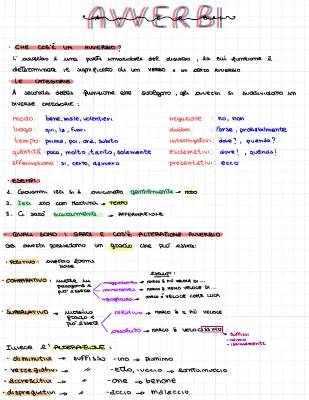 AVVERBI
· CHE COS'È UN AVVERBIO?
L'avverbio è una parte invariabile del discorso, la cui funzione è
determinare il significato di un verbo o un altro avverbio
LE CATEGORIE
A seconda della funzione che svolgono, gli avverbi si suddividono in
diverse categorie:
modo: bene, male, volentieri
negazione: no, non
luogo: qui, là, fuori
dubbio: forse, probabilmente
tempo: prima, poi, ora, subito
interrogativi: dove?, quando?
quantità: poco, molto, tanto, solamente
esclamativi: dove!, quando!
affermazione: sì, certo, davvero
presentativi: ecco
· ESEMPI:
1. Giovanni ieri si è avvicinato gentilmente → MODO
2. Ieri sto con Martina → TEMPO
3. Ci sarò sicuramente → AFFERMAZIONE
· QUALI SONO I GRADI E COS'È ALTERAZIONE AVVERBIO
Gli avverbi possiedono un grado che può essere:
· POSITIVO → avverbio forma
base
· COMPARATIVO → mette in
paragone e
può essere
maggioranza → MARCO È PIÙ VELOCE DI ...
minoranza → MARCO È MENO VELOCE DI ...
uguaglianza → MARCO È VELOCE COME LUCA
· SUPERLATIVO → massimo
grado e
può essere
relativo → MARCO È IL PIÙ VELOCE
assoluto → MARCO È VELOCISSIMO
suffissi
-issimo
-issimamente
Invece l'ALTERAZIONE:
- diminutivi → suffisso -ino → pianino
- vezzeggiativi → " -etto, -uccio →
- accrescitivi → " -one → benone
- dispregiativi → " -accio → malaccio